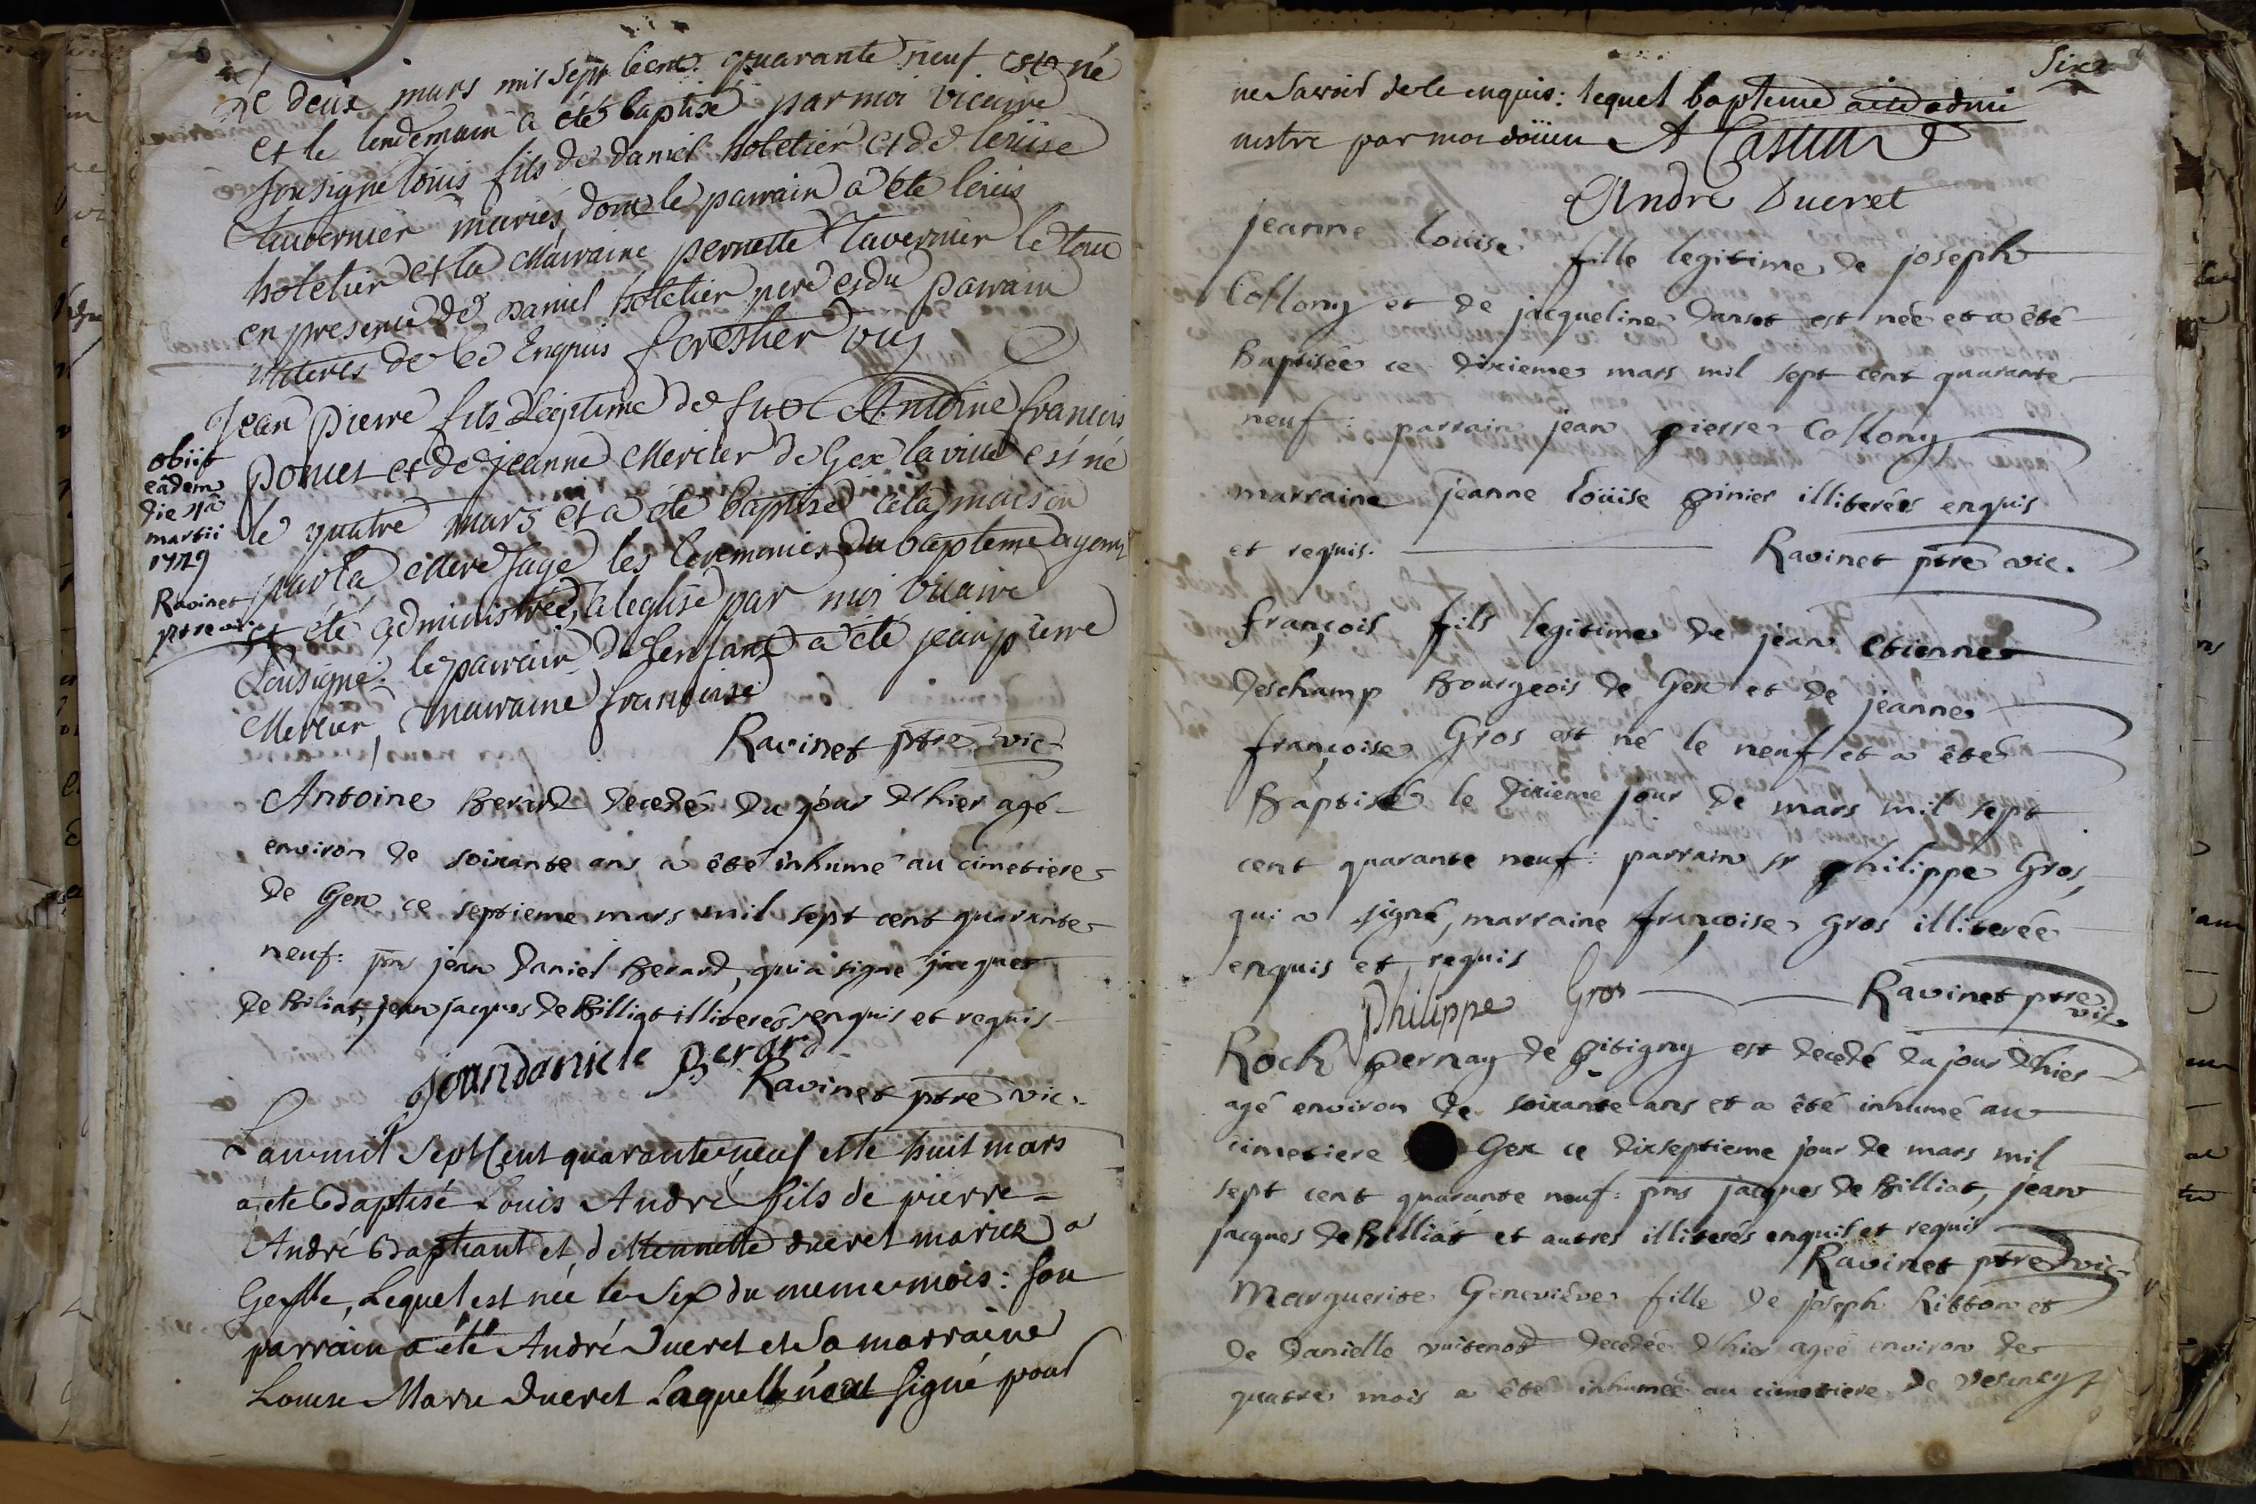 Le deux mars mil sept cent quarante neuf est né
et le lendemain a été baptisé par moi vicaire
sousigné loüis fils de daniel hotelier et de loüise
tavernier mariés, dont le parrain a été loüis
hotelier et la Marraine pernette Tavernier le tout
en presence de Daniel hotelier pere et du parrain
de ce Enquis forestier vic
Jean pierre fils Légitime de Antoine francois
poncet et de jeanne Mercier de Gex la ville est né
le quatre mars et a été baptisé a la maison
par la Mere sage les ceremonies du bapteme ayant
été administrées a leglise par moi vicaire
Sousigné: le parrain de lenfant a été jean pierre
Mercier, Marraine francoise
Ravinet ptre vic.
obiit
eâdem
die 4â
martii
1749
Ravinet
ptre vic
Antoine Berard decedé du jour d'hier agé
environ de soixante ans a êté inhumé au cimetiere
de Gex ce septieme mars mil sept cent quarante
neuf: pns jean Daniel Berard, qui a signé jacques
de Biliat, jean jacques de Billiat illiterés enquis et requis
jean daniele Berard
Ravinet ptre vic.
Lan mil Sept Cent quarante neuf et le huit mars
a ete Baptisé Louis André fils de pierre
André Baptiant et, dettiennette Dueret mariez a
Gex, Lequel est née le Six du meme mois: son
parrain a été André Dueret et Sa marraine
Louise Marie Dueret Laquelle n'ont signé pour
Six
ne Savoir de le enquis: lequel bapteme a été admi
nistre par moi doüien A Castin
André Dueret
jeanne loüise fille legitime de joseph
Collony et de jacqueline Danset est née et a êté
Baptisée ce dixieme mars mil sept cent quarante
neuf: parrain jean pierre Collony
marraine jeanne loüise pinier illiterées enquis
et requis. Ravinet ptre vic.
françois fils legitime de jean etienne
deschamp Bourgeois de Gex et de jeanne
françoise Gros est né le neuf et a êté
Baptisé le dixieme jour de mars mil sept
cent quarante neuf: parrain sr philippe Gros,
qui a signé, marraine françoise Gros illiterée
enquis et requis
Philippe Gros Ravinet ptre vic.
Rock pernay de pitigny est decedé du jour d'hier
agé environ de soixante ans et a êté inhumé au
cimetiere Gex ce dixseptieme jour de mars mil
sept cent quarante neuf: pns jacques de Billiat, jean
jacques de Billiat et autres illiterés enquis et requis
Ravinet ptre vic.
Marguerite Geneviève fille de joseph Ritton et
de Danielle vuitenod decedée d'hier agée environ de
quatre mois a êté inhumée au cimetiere de vesancy